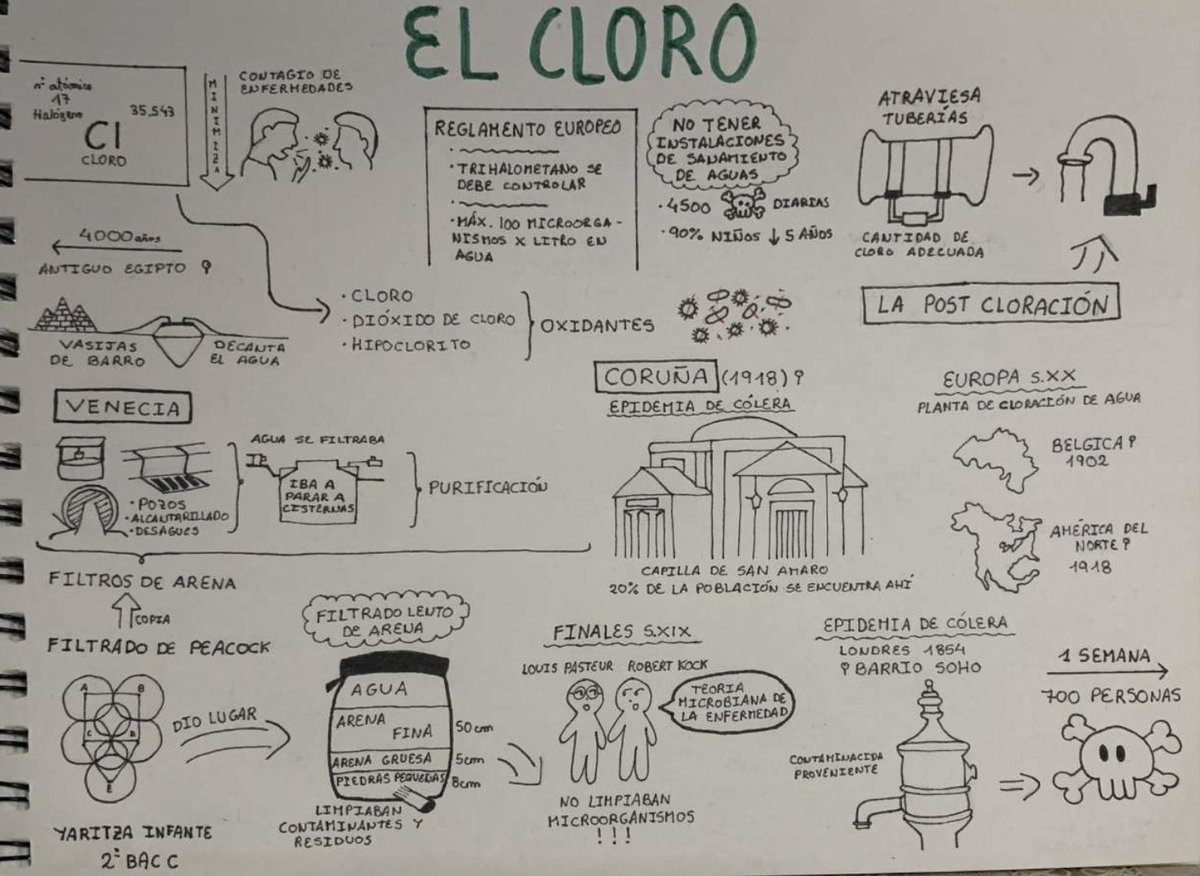 EL CLORO
nº atómico
17
Halógeno
35,543
Cl
CLORO
MINIMIZA
CONTAGIO DE
ENFERMEDADES
REGLAMENTO EUROPEO
· TRIHALOMETANO SE
DEBE CONTROLAR
· MÁX. 100 MICROORGA-
NISMOS X LITRO EN
AGUA
NO TENER
INSTALACIONES
DE SANAMIENTO
DE AGUAS
· 4500 DIARIAS
· 90% NIÑOS ↓ 5 AÑOS
ATRAVIESA
TUBERÍAS
→
CANTIDAD DE
CLORO ADECUADA
LA POST CLORACIÓN
4000 años
ANTIGUO EGIPTO
VASIJAS
DE BARRO
DECANTA
EL AGUA
· CLORO
· DIÓXIDO DE CLORO
· HIPOCLORITO
OXIDANTES
VENECIA
· POZOS
· ALCANTARILLADO
· DESAGÜES
AGUA SE FILTRABA
IBA A
PARAR A
CISTERNAS
PURIFICACIÓN
CORUÑA (1918)
EPIDEMIA DE CÓLERA
CAPILLA DE SAN AMARO
20% DE LA POBLACIÓN SE ENCUENTRA AHÍ
EUROPA S.XX
PLANTA DE CLORACIÓN DE AGUA
BELGICA
1902
AMÉRICA DEL
NORTE
1918
FILTROS DE ARENA
COPIA
FILTRADO DE PEACOCK
A B
C D
E
DIO LUGAR
FILTRADO LENTO
DE ARENA
AGUA
ARENA
FINA
50cm
ARENA GRUESA
5cm
PIEDRAS PEQUEÑAS
8cm
LIMPIABAN
CONTAMINANTES Y
RESIDUOS
FINALES S.XIX
LOUIS PASTEUR ROBERT KOCK
TEORIA
MICROBIANA DE
LA ENFERMEDAD
NO LIMPIABAN
MICROORGANISMOS
!!!
EPIDEMIA DE CÓLERA
LONDRES 1854
BARRIO SOHO
CONTAMINACIDA
PROVENIENTE
1 SEMANA
700 PERSONAS
YARITZA INFANTE
2º BAC C